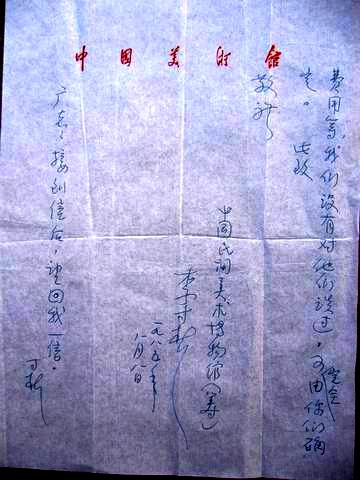 中国美术馆
费用等,我们没有对他们谈过,可由你们确
定。 此致
敬礼
中国民间美术博物馆(筹)
李寸松
一九八五年
八月八日
接到信后,望回我一信。
寸松